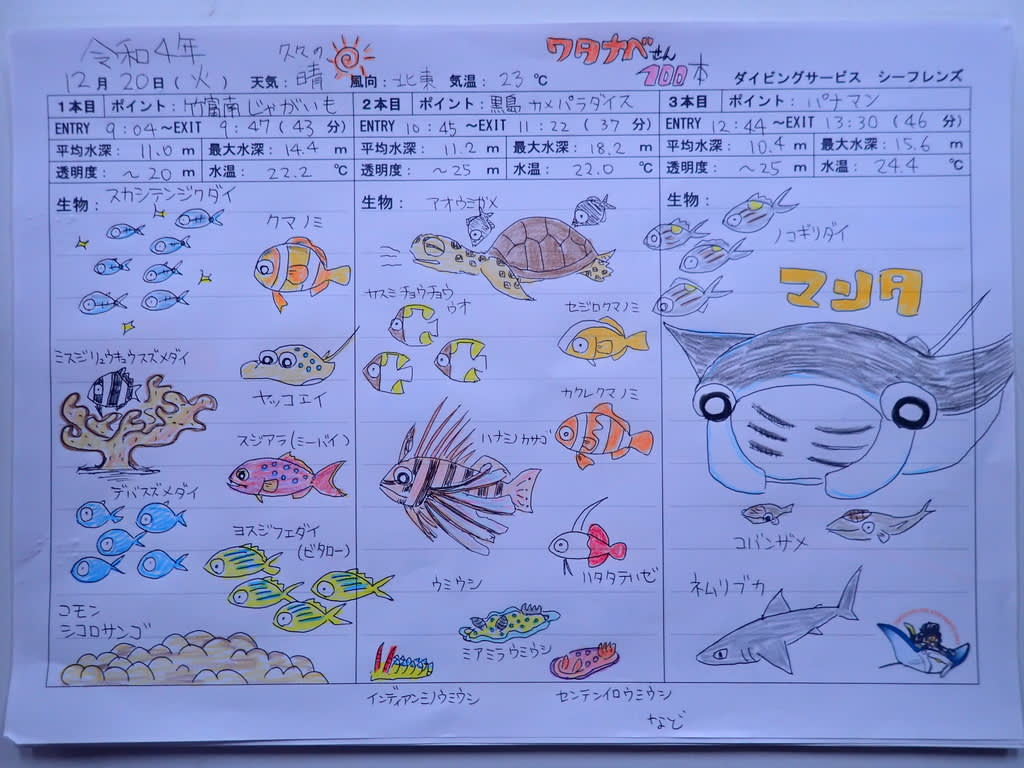 令和4年 久々の ワタナベさん
12月20日(火) 天気:晴 風向:北東 気温:23℃ 100本 ダイビングサービス シーフレンズ
1本目 ポイント:竹富南じゃがいも
ENTRY 9:04~EXIT 9:47(43分)
平均水深:11.0m 最大水深:14.4m
透明度:~20m 水温:22.2℃
生物:スカシテンジクダイ
クマノミ
ミスジリュウキュウスズメダイ
ヤッコエイ
スジアラ(ミーバイ)
デバスズメダイ
ヨスジフエダイ
(ビタロー)
コモン
シコロサンゴ
2本目 ポイント:黒島カメパラダイス
ENTRY 10:45~EXIT 11:22(37分)
平均水深:11.2m 最大水深:18.2m
透明度:~25m 水温:22.0℃
生物:アオウミガメ
カスミチョウチョウ
ウオ
セジロクマノミ
カクレクマノミ
ハナミノカサゴ
ハタタテハゼ
ウミウシ
ミアミラウミウシ
インディアンミノウミウシ
センテンイロウミウシ
など
3本目 ポイント:パナマン
ENTRY 12:44~EXIT 13:30(46分)
平均水深:10.4m 最大水深:15.6m
透明度:~25m 水温:24.4℃
生物:
ノコギリダイ
マンタ
コバンザメ
ネムリブカ